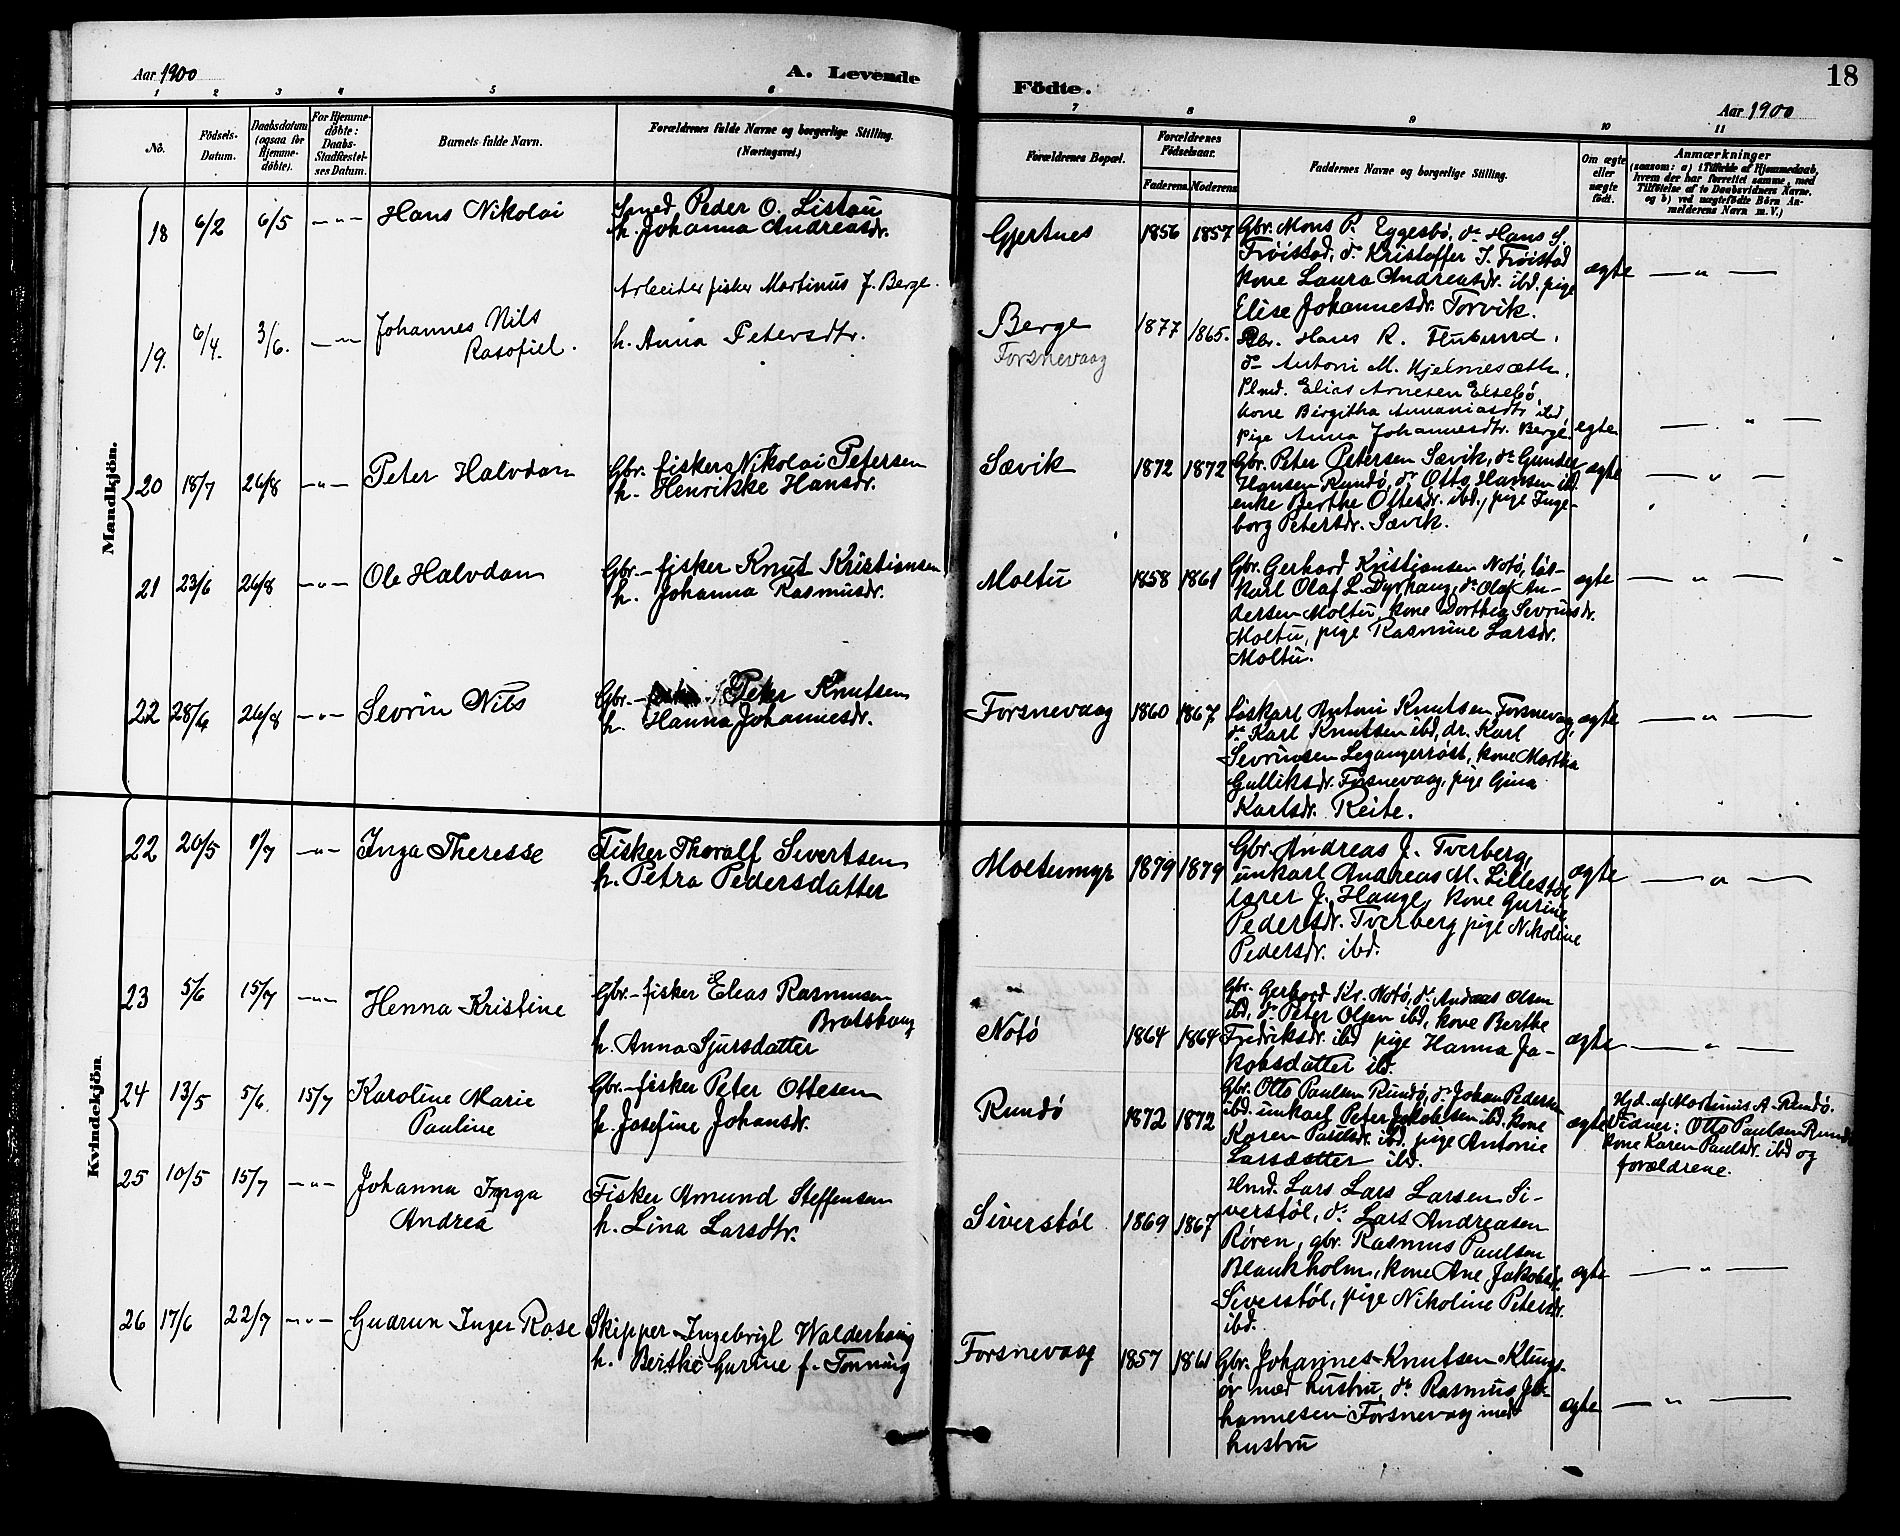 Aar 1900
A. Levende
Födte.
18
Aar 1900
1 2 3 4 5 6 7 8 9 10 11
No.
Födsels-
Datum.
Daabsdatum
(ogsaa for
Hjemme-
døbte).
For Hjemme-
døbte:
Daabs-
Stadfæstel-
ses Datum.
Barnets fulde Navn.
Forældrenes fulde Navne og borgerlige Stilling.
(Næringsvei.)
Forældrenes Bopæl.
Forældrenes
Födselsaar.
Faderens. Moderens.
Faddernes Navne og borgerlige Stilling.
Om ægte
eller
uægte
födt.
Anmærkninger
(saasom: a) i Tilfælde af Hjemmedaab,
hvem der har forrettet samme, med
Tilföielse af to Daabsvidners Navne,
og b) ved uægtefödte Börn An-
melderens Navn m. V.)
Mandkjön.
18 6/2 6/5 — " — Hans Nikolai
Smed Peder O. Listau
h. Johanna Andreasdr.
Gjertnes 1856 1857
Gbr. Mons P. Eggesbö, do Hans S.
Fröistad, do Kristoffer I. Fröistad
kone Laura Andreasdr. ibd. pige
Elise Johannesdr. Torvik.
ægte — " —
19. 6/4. 3/6. — " — Johannes Nils
Rasofiel.
Arbeider fisker Martinus J. Berge.
h. Anna Petersdtr.
Berge
Forsnevaag
1877 1865.
Gbr. Hans R. Flusund,
do Antoni M. Hjelmesæth,
Plmd. Elias Arnesen Eisebö,
kone Birgitha Annaniasdtr ibd,
pige Anna Johannesdtr. Berge.
egte — " —
20 18/7 26/8 — " — Peter Halvdan
Gbr. fisker Nikolai Petersen
h. Henrikke Hansdr.
Sævik 1872 1872
Gbr. Peter Petersen Sævik, do Gunder
Hansen Rundö, do Otto Hansen ibd.
enke Berthe Ottesdr. ibd., pige Inge-
borg Petersdr. Sævik.
ægte — " —
21 23/6 26/8 — " — Ole Halvdan
Gbr. - fisker Knut Kristiansen
h. Johanna Rasmusdr.
Moltu 1858 1861
Gbr. Gerhard Kristiansen Notö, lös-
karl Olaf L. Dyrhaug, do Olaf An-
dersen Moltu, kone Dorthea Sevrinsdr.
Moltu, pige Rasmine Larsdr.
Moltu.
ægte — " —
22 28/6 26/8 — " — Sevrin Nils
Gbr. - Peter Knutsen
h. Hanna Johannesdr.
Forsnevaag 1860 1867
Löskarl Antoni Knutsen Forsnevaag,
do Karl Knutsen ibd, dr. Karl
Sevrinsen Legangerröst, kone Martha
Gulliksdr. Forsnevaag, pige Gina
Karlsdr. Reite.
ægte — " —
Kvindekjön.
22 20/5 1/7 — " — Inga Theresse
Fisker Thoralf Sivertsen
h. Petra Pedersdatter
Moltumyr 1879 1879
Gbr. Andreas J. Tverberg,
unkarl Andreas M. Lillestöl
lærer J. Hauge, kone Gurine
Pedersdr. Tverberg pige Nikoline
Pedersdr. ibd.
ægte — " —
23 5/6 15/7 — " — Henna Kristine
Gbr. - fisker Elias Rasmusen
Bratshaug
h. Anna Sjursdatter
Notö 1864 1864
Gbr. Gerhard Kr. Notö, do Andreas Olsen
ibd, do Peter Olsen ibd, kone Berthe
Fredriksdr. ibd pige Hanna Ja-
kobsdatter ibd.
ægte — " —
24 13/5 5/6. 15/7 Karoline Marie
Pauline
Gbr. - fisker Peter Ottesen
h. Josefine Johansdr.
Rundö 1872 1872
Gbr. Otto Paulsen Rundö, do Johan Pedersen
ibd. unkarl Peter Jakobsen ibd. kone
Karen Paulsdr. ibd. pige Antonie
Larsdatter ibd.
ægte
Hjd. af Martinus A. Rundö.
Vidner: Otto Paulsen Rundö
kone Karen Paulsdr. ibd og
forældrene.
25 10/5 15/7 — " — Johanna Inga
Andrea
Fisker Amund Steffensen
h. Lina Larsdtr.
Siverstöl 1869 1867
Hmd. Lars Lars Larsen Si-
verstöl, do Lars Andreasen
Rören, gbr. Rasmus Paulsen
Blankholm, kone Ane Jakobsdr.
Siverstöl, pige Nikoline Petersdr.
ibd.
ægte — " —
26 17/6 22/7 — " — Gudrun Inger Rose
Skipper Ingebrigt Walderhaug
h. Berthe Gurine f. Tonning
Forsnevaag 1857 1861
Gbr. Johannes Knutsen Klungs-
ör med hustru, do Rasmus Jo-
hannesen Forsnevaag med
hustru
ægte — " —